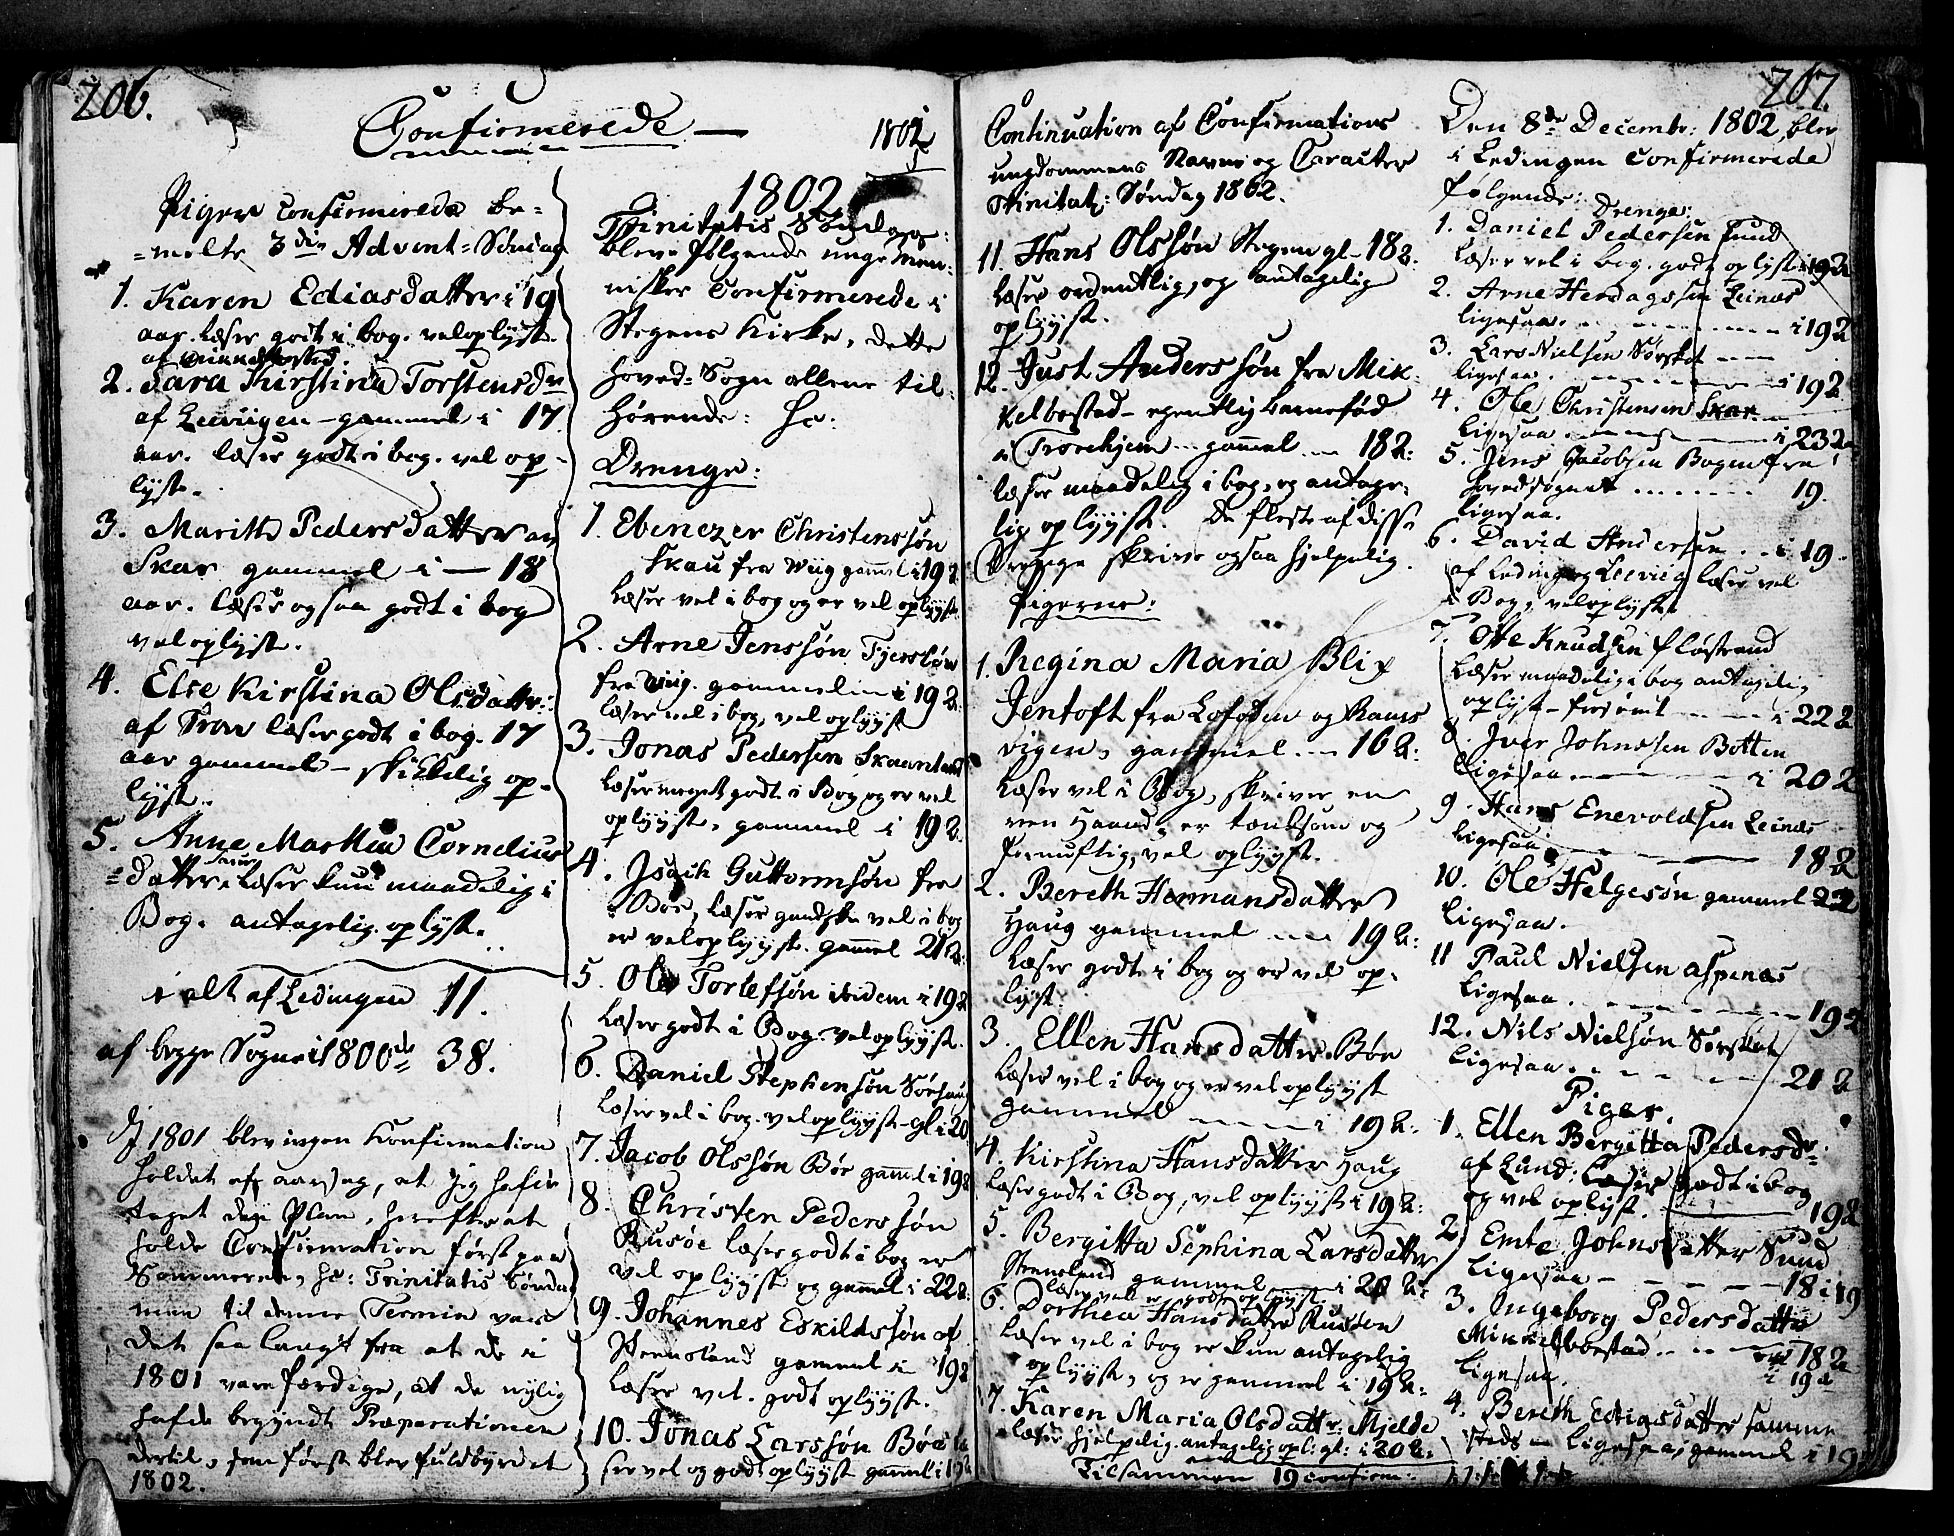 206.
Confirmerede —
1802
Piger confirmerede be=
=melte 3die Advent=Søndag
1. Karen Ediasdatter i 19
aar. læser godt i bog. vel oplyst
2. Sara Kirstina Torstensdr
af Leevigen – gammel i 17
aar. læser godt i bog. vel op-
lyst.
3. Marith Pedersdatter
Skar gammel i — 18
aar. læser ogsaa godt i bog
vel oplyst.
4. Else Kirstina Olsdatter:
læser godt i bog. 17
aar gammel – skikkelig op-
lyst.
5. Anne Marthea Cornelius
=datter læser kun maadelig i
Bog. antagelig oplyst.
i alt af Lødingen 11.
af begge Sogne i 1800de 38.
I 1801 blev ingen Confirmation
holdet af aarsag, at jeg hafver
taget den Plan, herefter at
holde Confirmation først paa
Sommeren, sc: Trinitatis Søndag
men til denne Termin var
det saa langt fra at de i
1801 vare færdige, at de nylig
hafde begyndt Præparationen
dertil, som først blev fuldbyrdet
1802.
1802
Trinitatis Søndag
bleve følgende unge Men-
nisker Confirmerede i
Stegens Kirke, dette
Hoved=Sogn allene til-
hørende: sc:
Drenge:
1. Ebenezer Christenssøn
Skau fra Wiig gamel i 19 a.
læser vel i bog og er vel oplyyst
2. Arne Jenssøn
fra Wiig. gammel i 19 a.
læser vel i bog, vel oplyyst
3. Jonas Pedersen Skaanland
læser meget godt i Bog og er vel
oplyyst, gammel i 19 a.
4. Isach Guttormsøn fra
Bøe, læser gandske vel i bog
er vel oplyyst. gammel 21 a.
5. Ole Tortefsøn ibidem i 19 a
læser godt i Bog. vel oplyyst.
6. Daniel Stephensøn
læser vel i bog. vel oplyyst – gl i 20
7. Jacob Olssøn Bøe gaml i 19 a
8. Christen Pederssøn
Rusøe læser godt i bog er
vel oplyyst og gamel i 22 a.
9. Johannes Eskildssøn af
Steensland gammel i 19 a
læser vel. godt oplyyst.
10. Jonas Larssøn Bøe læ
ser vel og godt oplyyst gamel i 19 a
207.
Continuation af Confirmations
ungdommens Navne og Caracter
Trinitat: Søndag 1802.
11. Hans Olssøn Stegen gl – 18 a.
læser ordentlig, og antagelig
oplyyst.
12. Just Anderssøn fra Mik-
kelbostad – egentlig barnefød
i Tronhjem – gammel — 18 a:
læser maadelig i bog, og antage-
lig oplyyst. De fleste af disse
Drenge skrive ogsaa hjelpelig.
Pigerne:
1. Regina Maria Blix
Jentoft fra Lofoden og
vigen, gammel — 16 a:
læser vel i Bog, skriver en
reen Haand, er tænksom og
fornuftig, vel oplyyst.
2. Bereth Hermansdatter
Haug gammel — 19 a:
læser godt i bog og er vel op-
lyst.
3. Ellen Hansdatter Bøe
læser vel i bog og er vel oplyyst
gammel — i 19 a.
4. Kirstina Hansdatter Haug
læser godt i Bog, vel oplyyst i 19 a:
5. Bergitta Sephina Larsdatter
Steensland gammel i 20 a:
læser vel er godt oplyyst.
6. Dorthea Hansdatter Rusøen
læser vel i bog er kun antagelig
oplyyst, og er gammel i 19 a:
7. Karen Maria Olsdatter: Mjelde
læser hjelpelig. antagelig opl: gl: i 20 a:
Tilsammen 19 confirm:
Den 8de Decembr: 1802, blev
i Lødingen confirmerede
følgende: Drenge:
1. Daniel Pedersen Lund
læser vel i bog. godt oplyst i 19 a
2. Arne Herdagssen Leines
ligesaa. — i 19 a
3. Lars Nielsen Sørskot —
ligesaa. — i 19 a
4. Ole Christensen Skar
ligesaa — i 23 a
5. Jens Jacobsen Bogen fra
hovedsognet ... 19.
ligesaa.
6. David Andersen .. i 19.
af Lødingen Leevig læser vel
i Bog, vel oplyst
7. Otte Knudsen Fløstrand
læser maadelig i bog antagelig
oplyst – forsømt — i 22 a
8. Iver Johnssen Botten
ligesaa — i 20 a
9. Hans Enevoldsen Leines
ligesaa — 18 a
10. Ole Helgesøn gammel 22
ligesaa.
11 Paul Nielsen Aspenes
ligesaa. — 19 a
12. Nils Nielsøn Sørskot
ligesaa — 21 a
Piger.
1. Ellen Bergitta Pedersdr
af Lund: læser godt i bog
og vel oplyst. — 19 a
2. Emte Johnsdatter Sund
ligesaa – – – 18 i 19
3. Ingeborg Pedersdatter
Minnelbostad — 18 a
ligesaa. i 19 a
4. Bereth Ediasdatter samme
steds – ligesaa, gammel i 19